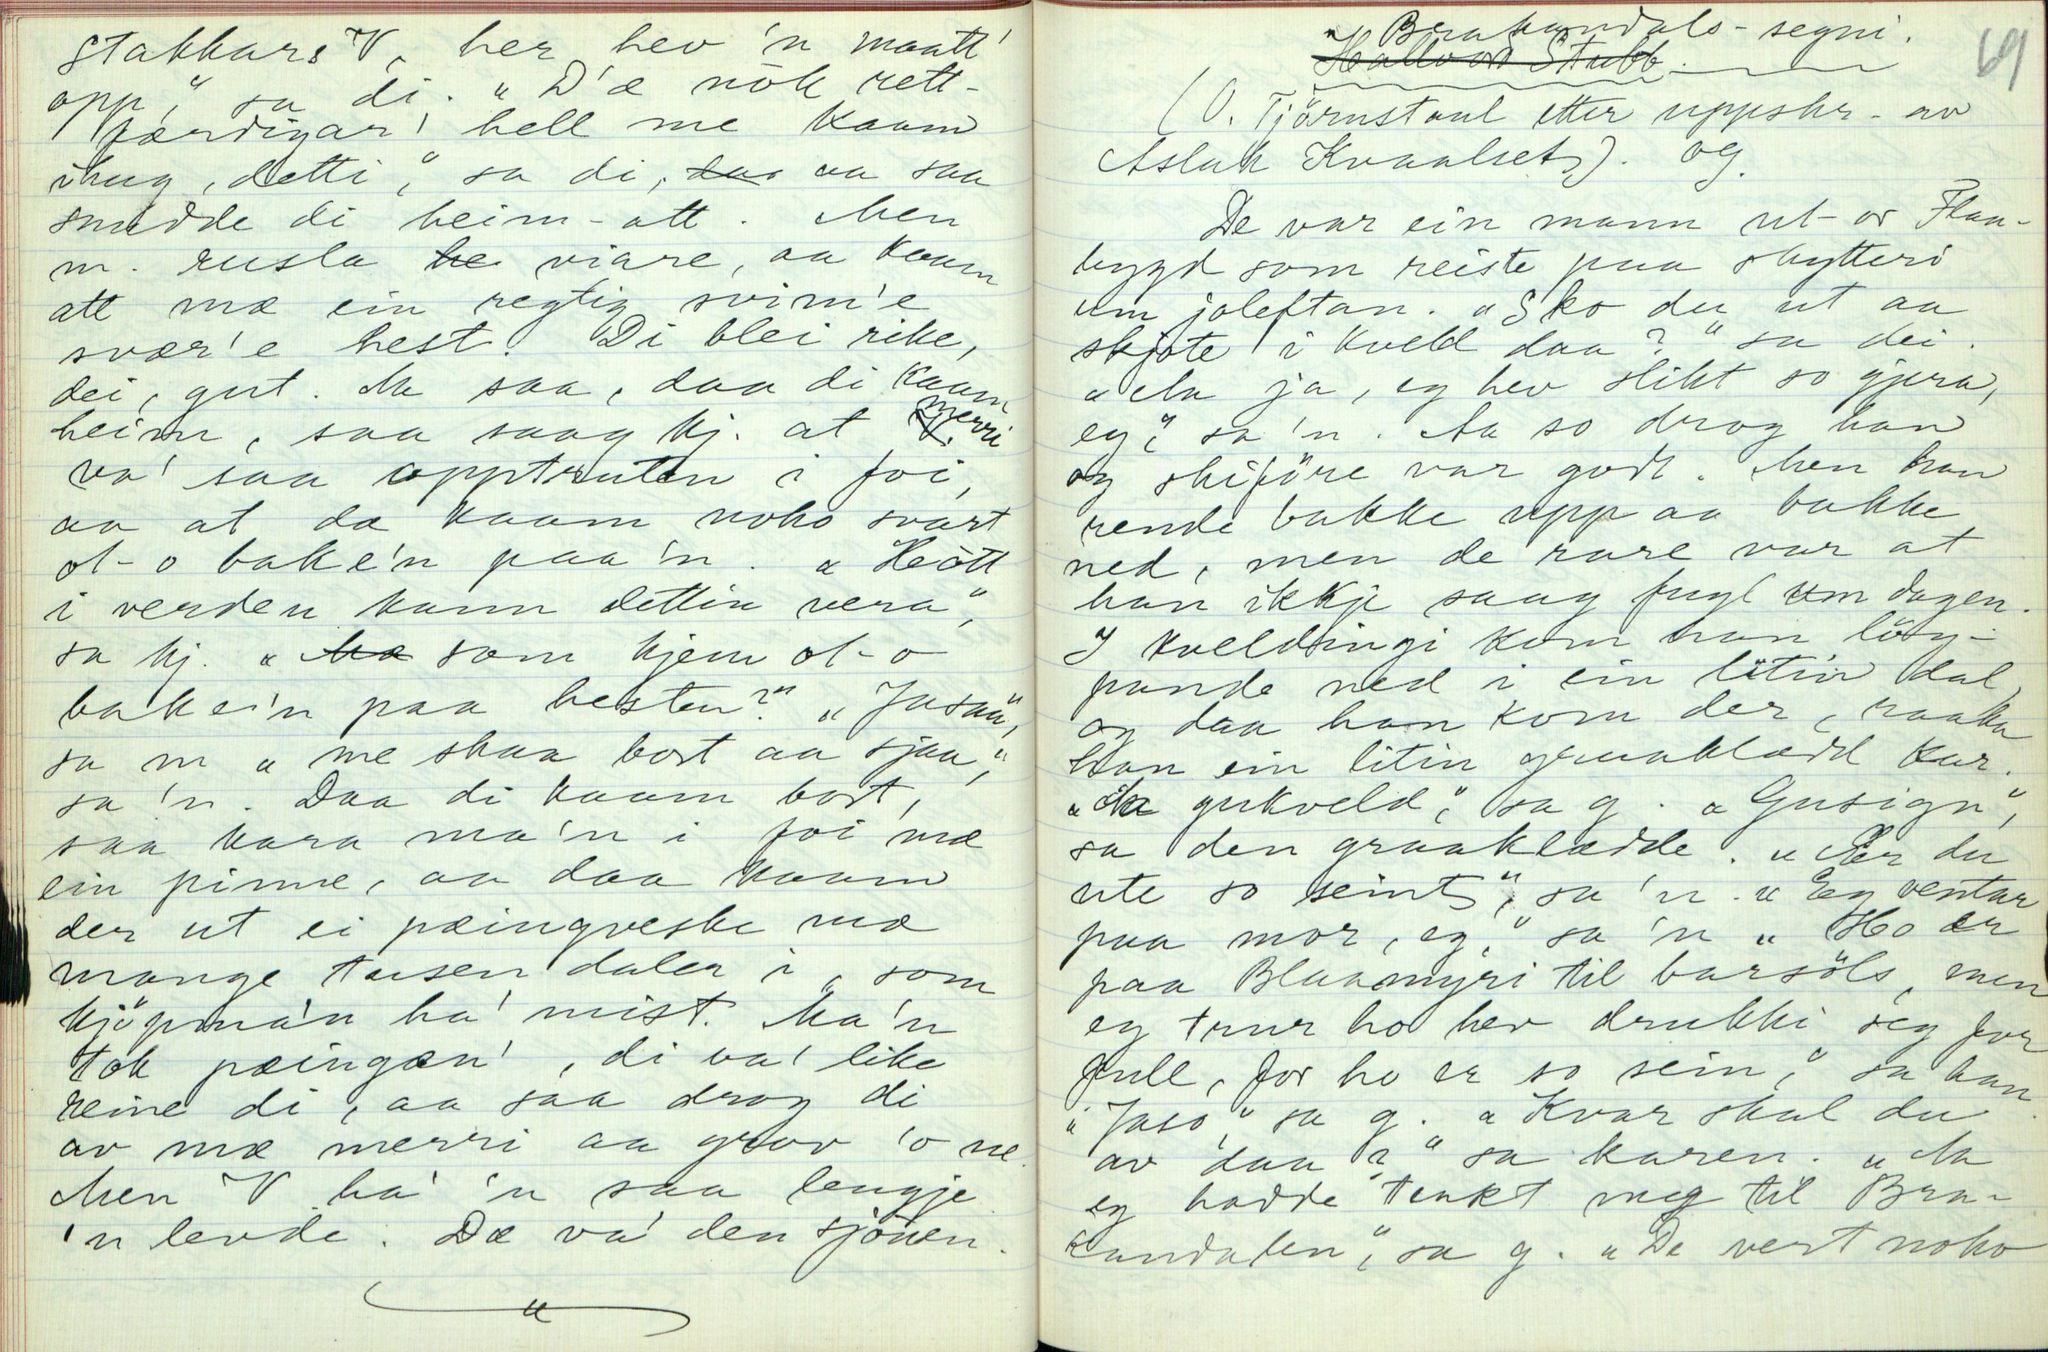 Stakkars V, her hev 'n maatt'
opp," sa di. "D'æ nòk rett-
færdigar' hell me kaam
ihug, detti," sa di, aa saa
snudde di heim-att. Men
m. rusla viare, aa kaam
att mæ ein regtig svim'e
svær'e hest. Di blei rike,
dei, gut. Aa saa, daa di kaam
heim, saa saag kj. at merri
va' saa opptruten i foi,
aa at dæ kaam noko svart
ot-o bake'n paa'n. "Hòtt
i verden kann dettia vera",
sa kj. " som kjem ot-o
bakei'n paa hesten?" "Jasaa",
sa m "me skaa bort aa sjaa",
sa'n. Daa di kaam bort,
saa kara ma'n i foi mæ
ein pinne, aa daa kaam
der ut ei pæingveske mæ
mange tusen daler i, som
kjöpma'n ha' mist. Ma'n
tok pæingan', di va' like
reine di, aa saa drog di
av mæ merri aa grov 'o ne.
Men V ha' 'n saa lengje
'n levde. Dæ va' den sjòuen.
69
Brakandals-segni.
Hallvor Stubb.
(O. Tjörnstaul etter uppskr. av
Aslak Kvaalset). og.
De var ein mann ut-or Flaa-
bygd som reiste paa skytteri
um joleftan. "Sko du ut aa
skjote i kveld daa?" sa dei.
"Aa ja, eg hev slikt so gjera,
eg," sa'n. Aa so drog han
og skiföre var godt. Men han
rende bakke upp aa bakke
ned, men de rare var at
han ikkje saag fugl um dagen.
I kveldingi kom han löy-
pande ned i ein litin dal,
og daa han kom der, raaka
han ein litin graaklædd kar.
" gukveld," sa g. "Gusign",
sa den graaklædde. "Er du
ute so seint," sa'n. "Eg ventar
paa mor, eg," sa'n "Ho er
paa Blaamyri til barsöls, men
eg trur ho hev drukki seg for
full, for ho er so sein," sa han.
"Jaso," sa g. "Kvar skal du
av daa?" sa karen. "Aa
eg hadde tenkt meg til Bra-
kandalen," sa g. "De vert noko